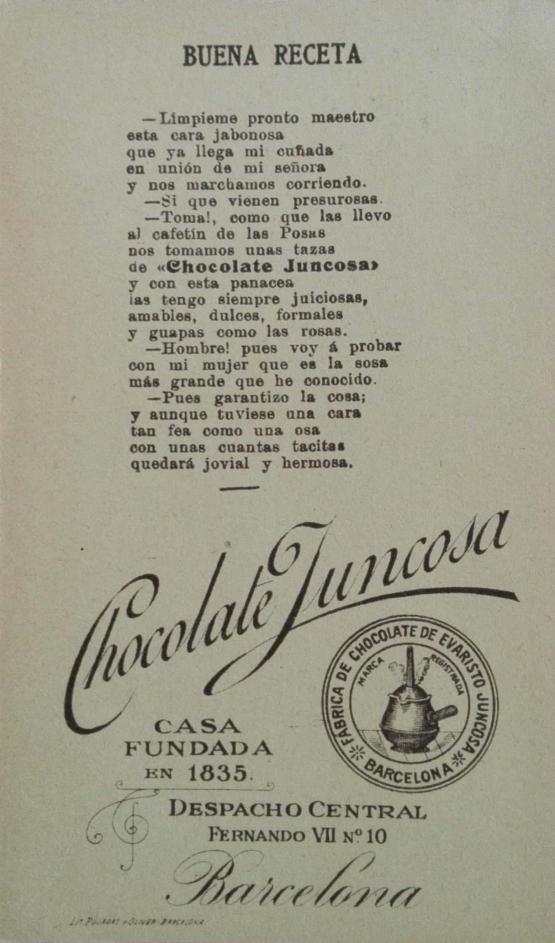 BUENA RECETA
—Límpieme pronto maestro
esta cara jabonosa
que ya llega mi cuñada
en unión de mi señora
y nos marchamos corriendo.
—Si que vienen presurosas.
—Toma!, como que las llevo
al cafetín de las Posas
nos tomamos unas tazas
de «Chocolate Juncosa»
y con esta panacea
las tengo siempre juiciosas,
amables, dulces, formales
y guapas como las rosas.
—Hombre! pues voy á probar
con mi mujer que es la sosa
más grande que he conocido.
—Pues garantizo la cosa;
y aunque tuviese una cara
tan fea como una osa
con unas cuantas tacitas
quedará jovial y hermosa.
Chocolate Juncosa
FÁBRICA DE CHOCOLATE DE EVARISTO JUNCOSA
MARCA REGISTRADA
BARCELONA
CASA
FUNDADA
EN 1835.
DESPACHO CENTRAL
FERNANDO VII Nº 10
Barcelona
LIT. PUJADAS Y OLIVER-BARCELONA.